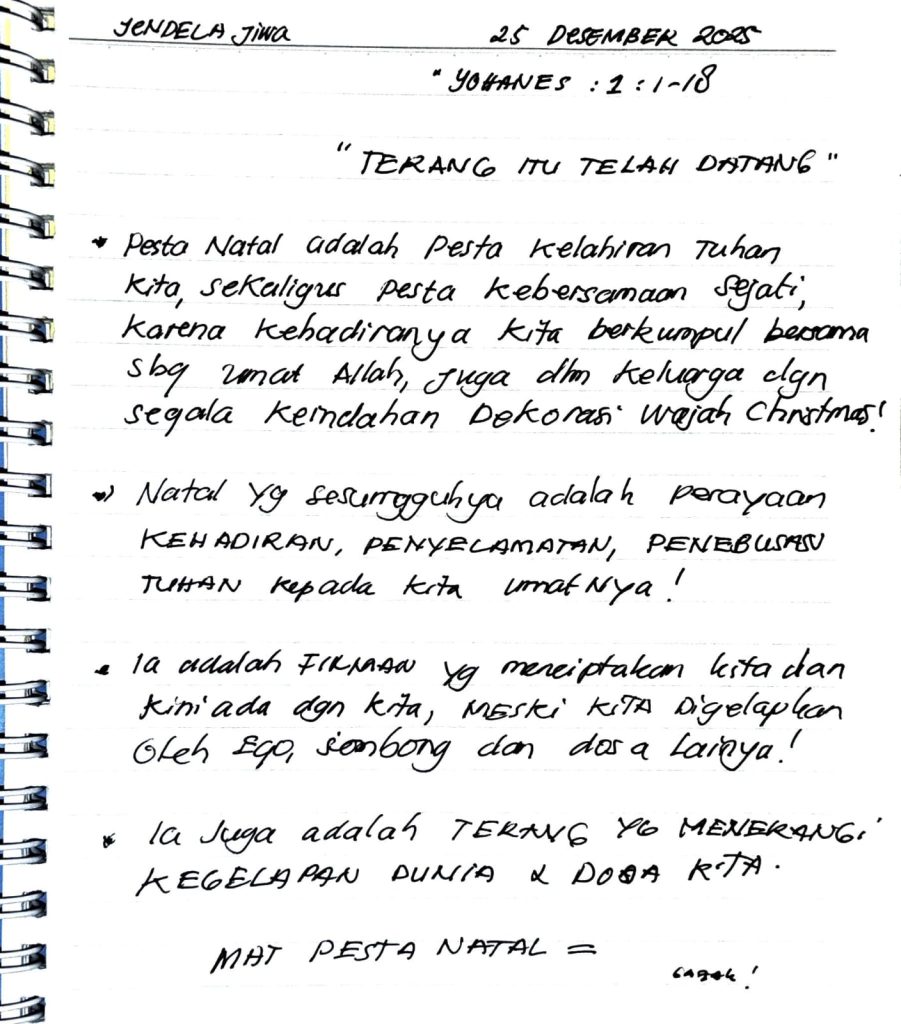 JENDELA JIWA 25 DESEMBER 2025
"YOHANES : 1 : 1-18
"TERANG ITU TELAH DATANG"
Pesta Natal adalah pesta kelahiran Tuhan
kita, sekaligus pesta kebersamaan sejati,
karena kehadiranya kita berkumpul bersama
sbg umat Allah, juga dlm keluarga dgn
segala keindahan Dekorasi wajah Christmas!
Natal yg sesungguhya adalah perayaan
KEHADIRAN, PENYELAMATAN, PENEBUSAN
TUHAN kepada kita umatNya!
Ia adalah FIRMAN yg menciptakan kita dan
kini ada dgn kita, MESKI KITA Digelapkan
Oleh Ego, sombong dan dosa Lainya!
Ia Juga adalah TERANG YG MENERANGI
KEGELAPAN DUNIA & DOSA KITA.
MAT PESTA NATAL =